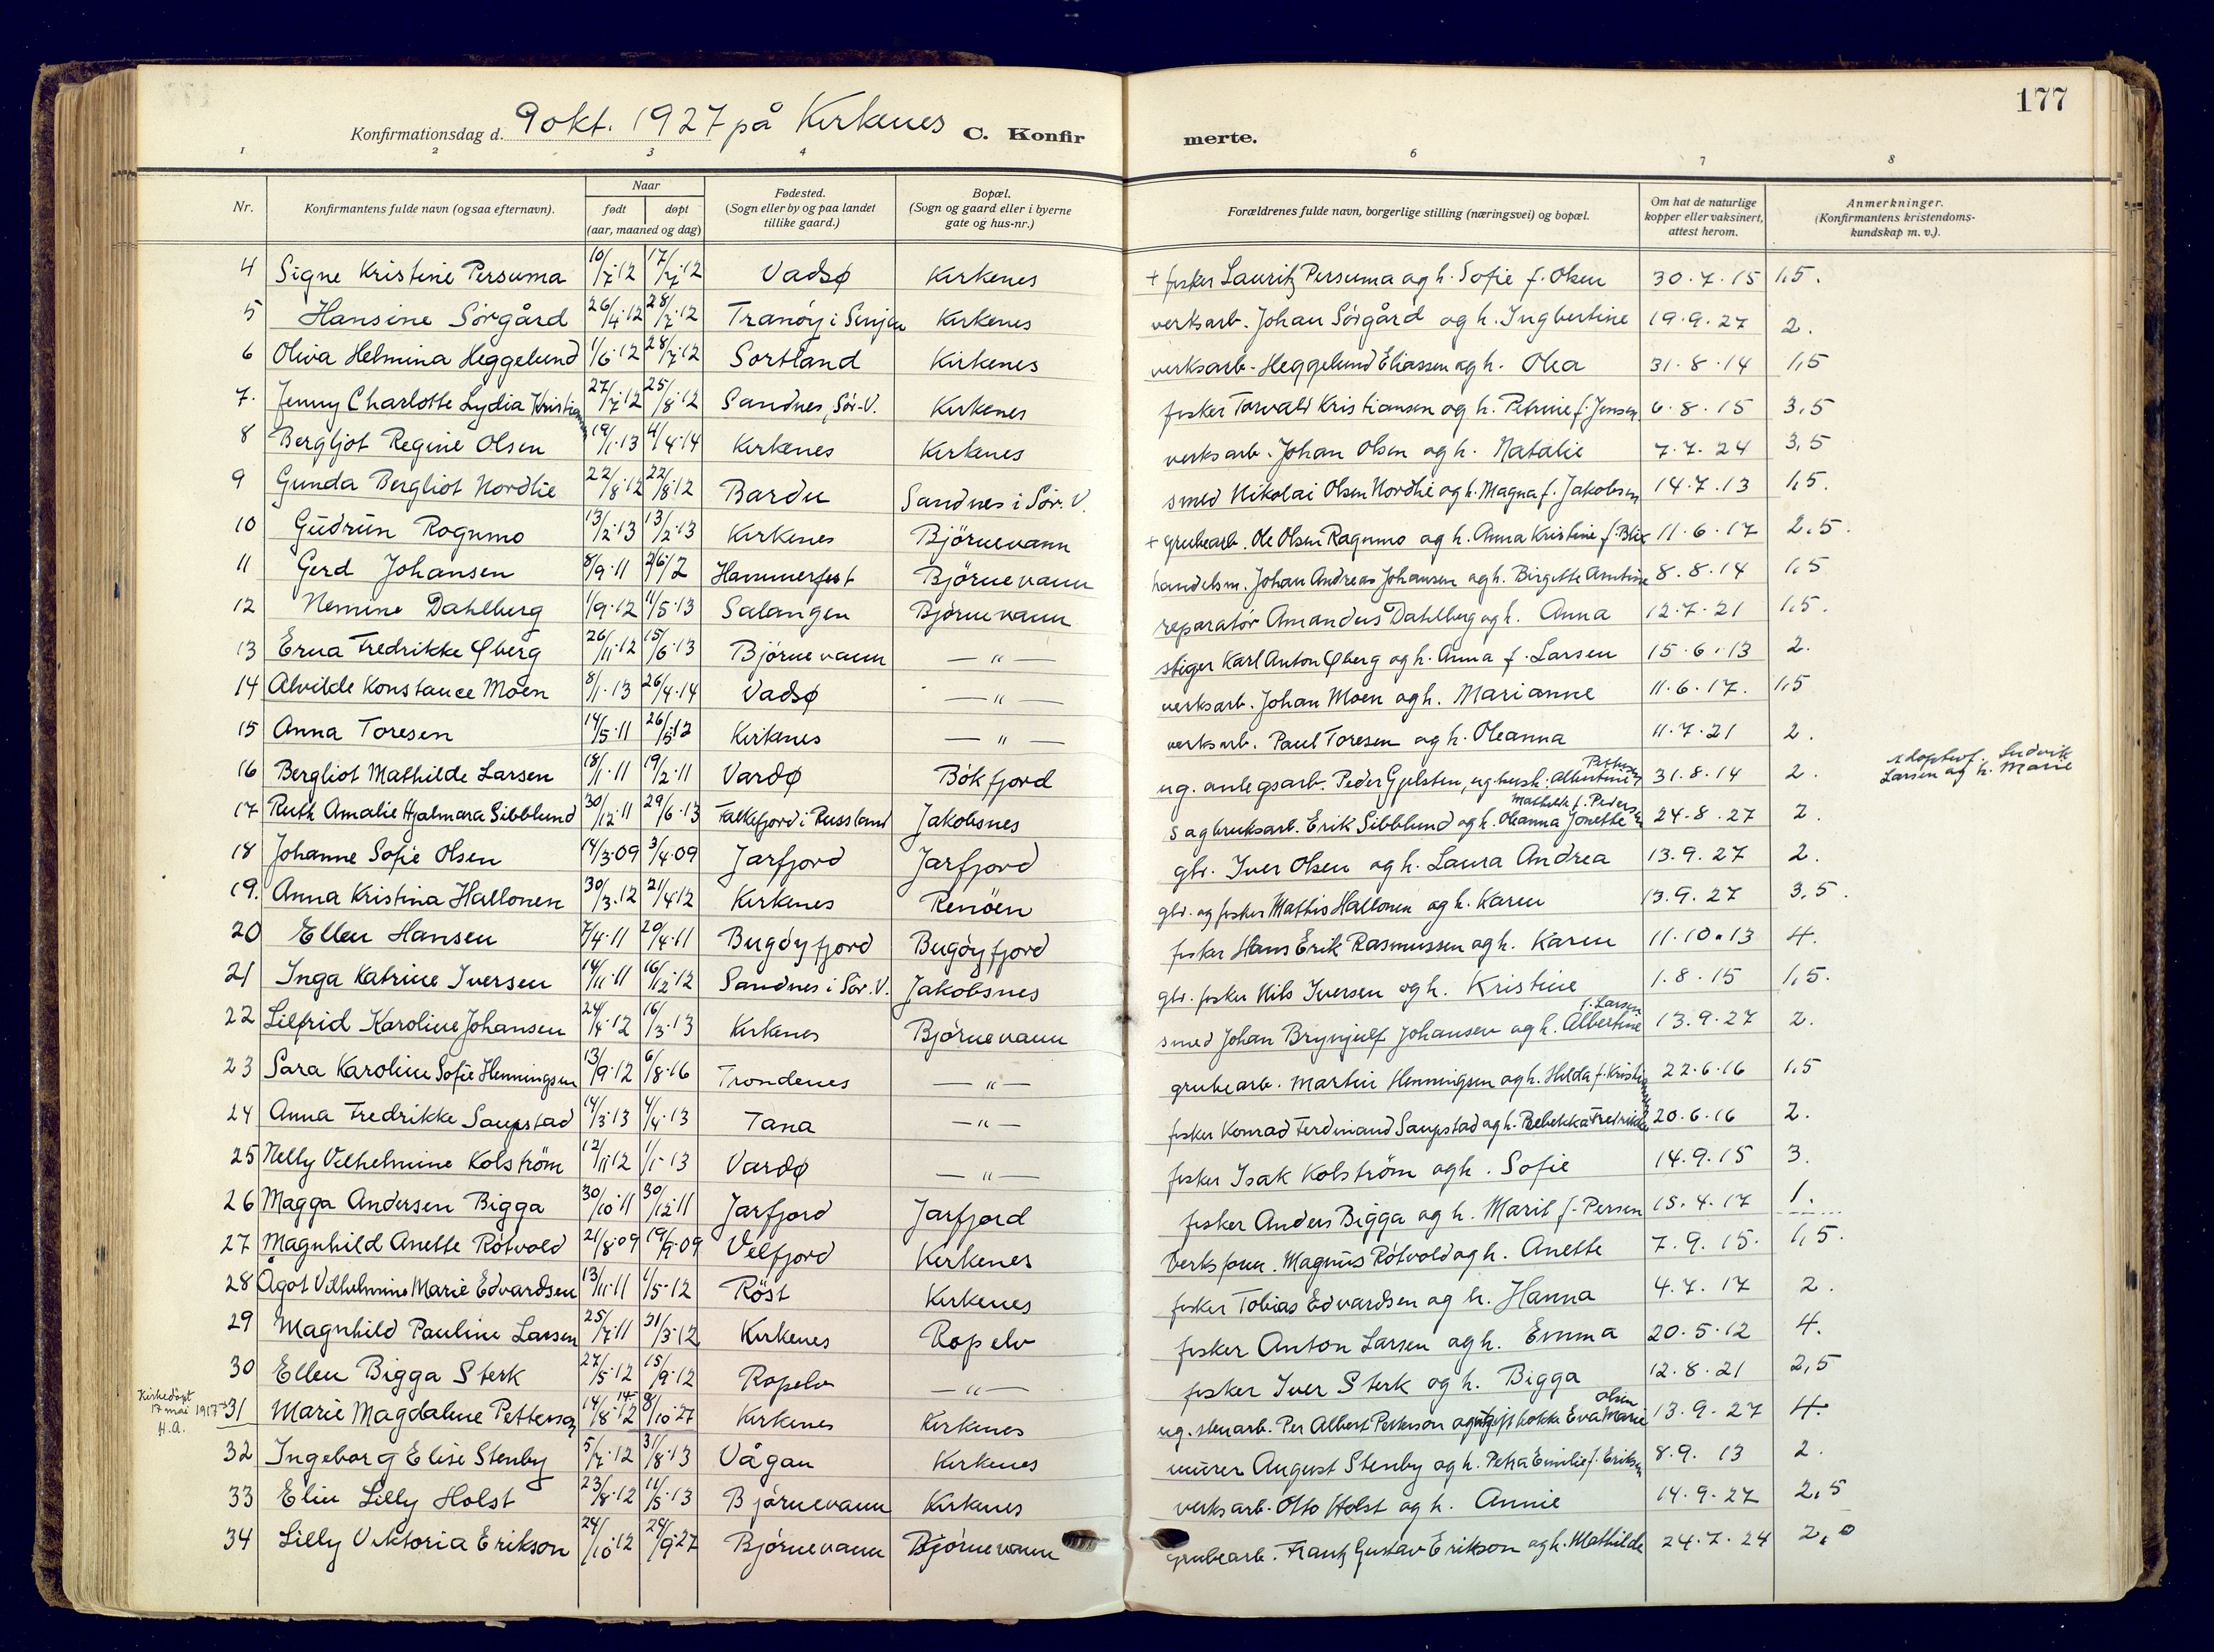 177
Konfirmationsdag d. 9 okt. 1927 på Kirkenes C. Konfir merte.
1 2 3 4 6 7 8
Nr. Konfirmantens fulde navn (ogsaa efternavn). Naar født døpt (aar, maaned og dag) Fødested. (Sogn eller by og paa landet tillike gaard.) Bopæl. (Sogn og gaard eller i byerne gate og hus-nr.) Forældrenes fulde navn, borgerlige stilling (næringsvei) og bopæl. Om hat de naturlige kopper eller vaksinert, attest herom. Anmerkninger. (Konfirmantens kristendoms-kundskap m. v.).
4 Signe Kristine Persuma 10/7·12 17/7·12 Vadsø Kirkenes + fisker Lauritz Persuma og h. Sofie f. Olsen 30·7·15 1,5.
5 Hansine Sörgård 26/4·12 28/7·12 Tranöy i Senjen Kirkenes verksarb. Johan Sörgård og h. Ingbertine 19·9·27 2.
6 Oliva Helmina Heggelund 1/6·12 28/7·12 Sortland Kirkenes verksarb. Heggelund Eliassen og h. Olea 31·8·14 1,5
7. Jenny Charlotte Lydia Kristiansen 27/7·12 25/8·12 Sandnes, Sör-V. Kirkenes fisker Torvald Kristiansen og h. Petrine f. Jensen 6·8·15 3,5
8 Bergljot Regine Olsen 19/1·13 4/4·14 Kirkenes Kirkenes verksarb. Johan Olsen og h. Natalie 7·7·24 3,5
9 Gunda Bergliot Nordlie 22/8·12 22/8·12 Bardu Sandnes i Sör. V. smed Nikolai Olsen Nordlie og h. Magna f. Jakobsen 14·7·13 1,5.
10 Gudrun Rognmo 13/2·13 13/2·13 Kirkenes Björnevann + grubearb. Ole Olsen Ragnmo og h. Anna Kristine f. Blix 11·6·17 2,5.
11 Gerd Johansen 8/9·11 Hammerfest Björnevann handelsm. Johan Andreas Johansen og h. Birgitte 8·8·14 1,5
12 Nemine Dahlberg 1/9·12 11/5·13 Salangen Björnevann reparatör Amandus Dahlberg og h. Anna 12·7·21 1,5.
13 Erna Fredrikke Øberg 26/11·12 15/6·13 Björnevann — " — stiger Karl Anton Øberg og h. Anna f. Larsen 15·6·13 2.
14 Alvilde Konstance Moen 8/1·13 26/4·14 Vadsø — " — verksarb. Johan Moen og h. Marianne 11·6·17. 1,5
15 Anna Toresen 14/5·11 26/5·12 Kirkenes — " — verksarb. Paul Toresen og h. Oleanna 11·7·21 2.
16 Bergliot Mathilde Larsen 18/1·11 19/2·11 Vardø Bökfjord ug. anlegsarb. Peder Gjelsten, ug hush. Albertine Pettersen 31·8·14 2. Adoptivf. Ludvik Larsen og h. Marie
17 Ruth Amalie Hjalmara Sibblund 30/12·11 29/6·13 i Russland Jakobsnes Sagbruksarb. Erik Sibblund og h. Oleanna Jonette Mathilde f. Pedersen 24·8·27 2.
18 Johanne Sofie Olsen 14/3·09 3/4·09 Jarfjord Jarfjord gbr. Iver Olsen og h. Laura Andrea 13·9·27 2.
19. Anna Kristina Hallonen 30/3·12 21/4·12 Kirkenes Renöen gbr. og fisker Mathis Hallonen og h. Karen 13·9·27 3,5.
20 Ellen Hansen 7/4·11 20/4·11 Bugöyfjord Bugöyfjord fisker Hans Erik Rasmussen og h. Karen 11·10·13 4.
21 Inga Katrine Iversen 14/11·11 16/12·12 Sandnes i Sör. V. Jakobsnes gbr. fisker Nils Iversen og h. Kristine 1·8·15 1,5.
22 Lilfrid Karoline Johansen 24/4·12 16/3·13 Kirkenes Björnevann smed Johan Brynjulf Johansen og h. Albertine f. Larsen 13·9·27 2.
23 Sara Karoline Sofie Henningsen 13/9·12 6/8·16 Trondenes — " — grubearb. Martin Henningsen og h. Hilda f. Kristiansen 22·6·16 1,5
24 Anna Fredrikke Saupstad 14/3·13 4/4·13 Tana — " — fisker Konrad Ferdinand Saupstad og h. Rebekka Fredrikke 20·6·16 2.
25 Nelly Vilhelmine Kolström 12/11·12 1/1·13 Vardø — " — fisker Isak Kolström og h. Sofie 14·9·15 3.
26 Magga Andersen Bigga 30/10·11 30/12·11 Jarfjord Jarfjord fisker Anders Bigga og h. Marit f. Persen 15·4·17 1.
27 Magnhild Anette Rötvold 21/8·09 19/9·09 Velfjord Kirkenes Verksform. Magnus Rötvold og h. Anette 7·9·15· 1,5.
28 Ågot Vilhelmine Marie Edvardsen 13/11·11 1/5·12 Röst Kirkenes fisker Tobias Edvardsen og h. Hanna 4·7·17 2.
29 Magnhild Pauline Larsen 25/7·11 31/3·12 Kirkenes Ropelv fisker Anton Larsen og h. Emma 20·5·12 4.
30 Ellen Bigga Sterk 27/5·12 15/9·12 Ropelv — " — fisker Iver Sterk og h. Bigga 12·8·21 2,5
Kirkedöpt 17 mai 1917 H.A. 31 Marie Magdalene Petterson 14/8·12 8/10·27 Kirkenes Kirkenes ug. stenarb. Per Albert Petterson og ugift kokke Eva Marie Olsen 13·9·27 4.
32 Ingeborg Elise Stenby 5/7·12 31/8·13 Vågan Kirkenes murer August Stenby og h. Petra Emilie f. Eriksen 8·9·13 2.
33 Elin Lilly Holst 23/8·12 11/5·13 Björnevann Kirkenes verksarb. Otto Holst og h. Annie 14·9·27 2,5
34 Lilly Viktoria Erikson 24/10·12 24/9·27 Björnevann Björnevann grubearb. Frantz Gustav Erikson og h. Mathilde 24·7·24 2,0